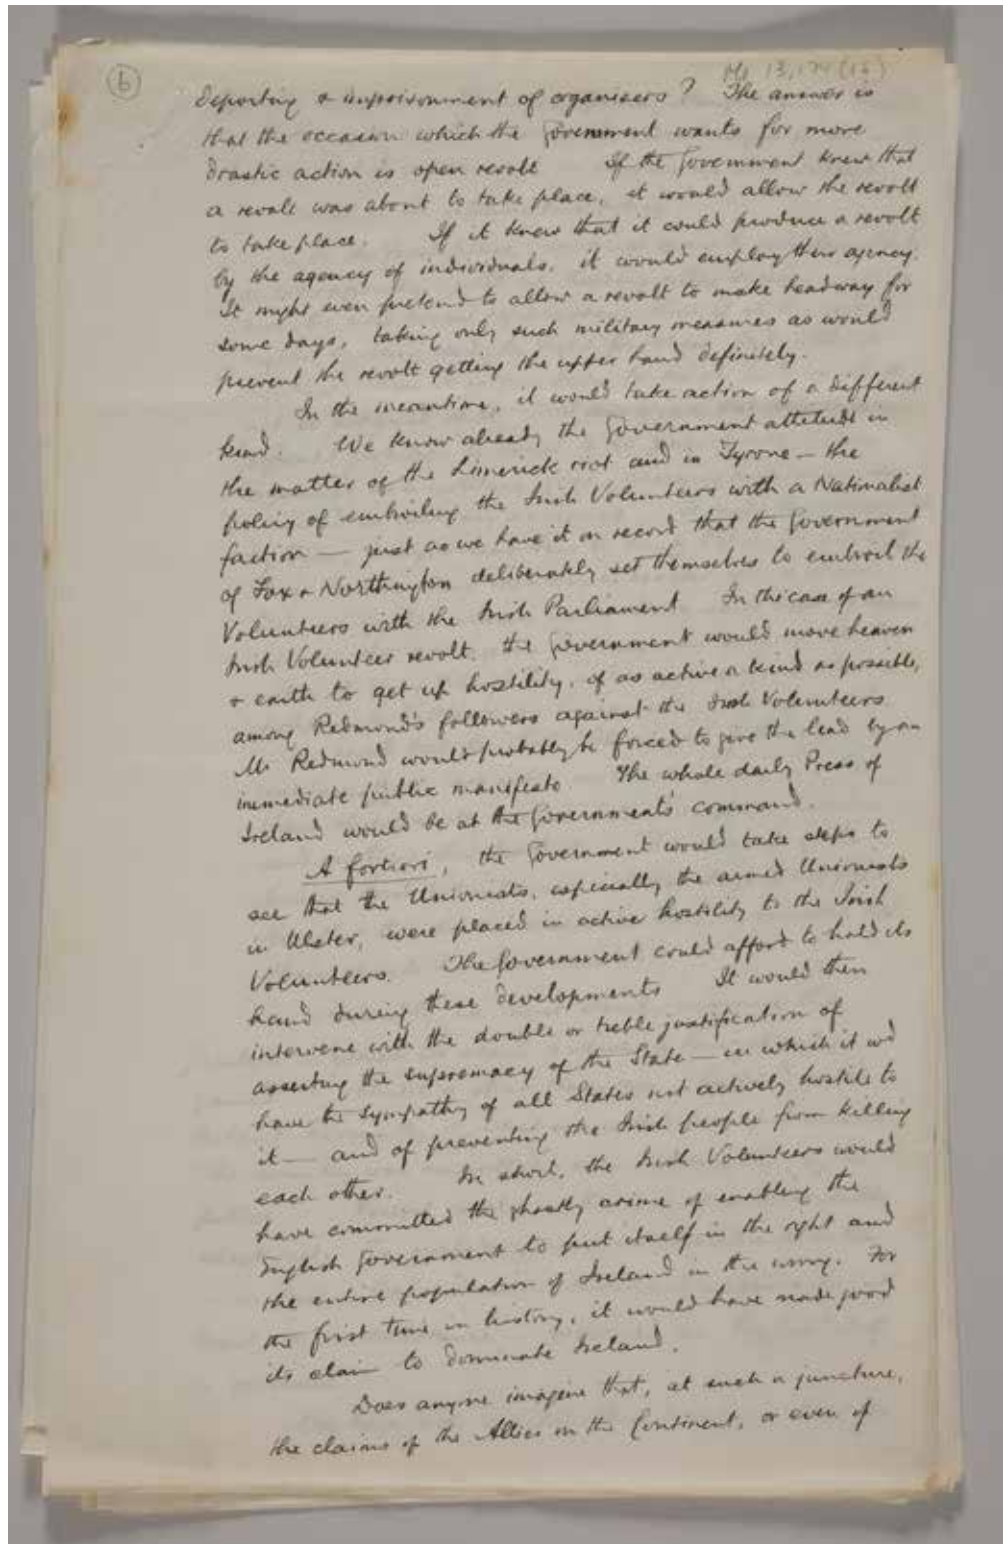 6
Ms 13,174(15)
deporting & imprisonment of organisers? The answer is
that the occasion which the Government wants for more
drastic action is open revolt If the Government knew that
a revolt was about to take place, it would allow the revolt
to take place. If it knew that it could produce a revolt
by the agency of individuals, it would employ their agency.
It might even pretend to allow a revolt to make headway for
some days, taking only such military measures as would
prevent the revolt getting the upper hand definitely.
In the meantime, it would take action of a different
kind. We know already the Government attitude in
the matter of the Limerick riot and in Tyrone — the
policy of embroiling the Irish Volunteers with a Nationalist
faction — just as we have it on record that the Government
of Fox & Northington deliberately set themselves to embroil the
Volunteers with the Irish Parliament In the case of an
Irish Volunteer revolt, the Government would move heaven
& earth to get up hostility, of as active a kind as possible,
among Redmond's followers against the Irish Volunteers.
Mr Redmond would probably be forced to give the lead by an
immediate public manifesto The whole daily Press of
Ireland would be at the Government's command.
A fortiori, the Government would take steps to
see that the Unionists, especially the armed Unionists
in Ulster, were placed in active hostility to the Irish
Volunteers. The Government could afford to hold its
hand during these developments It would then
intervene with the double or treble justification of
asserting the supremacy of the State — in which it wd
have the sympathy of all States not actively hostile to
it — and of preventing the Irish people from killing
each other. In short, the Irish Volunteers would
have committed the ghastly crime of enabling the
English Government to put itself in the right and
the entire population of Ireland in the wrong. For
the first time in history, it would have made good
its claim to dominate Ireland.
Does anyone imagine that, at such a juncture,
the claims of the Allies on the Continent, or even of